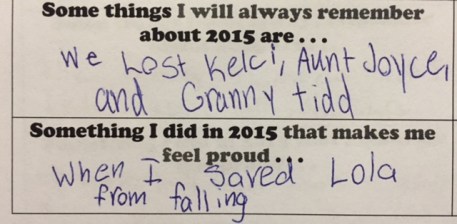 Some things I will always remember
about 2015 are . . .
We Lost Kelci, Aunt Joyce,
and Granny tidd
Something I did in 2015 that makes me
feel proud . . .
When I saved Lola
from falling